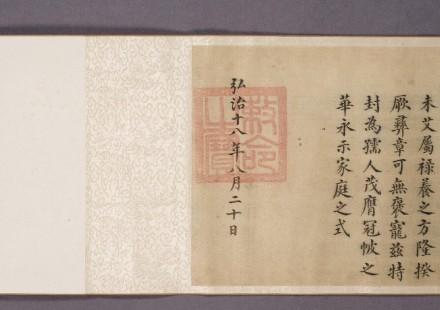 未艾屬祿養之方隆揆
厥彞章可無褒寵茲特
封為孺人茂膺冠帔之
華永示家庭之式
弘治十八年八月二十日
敕命之寶